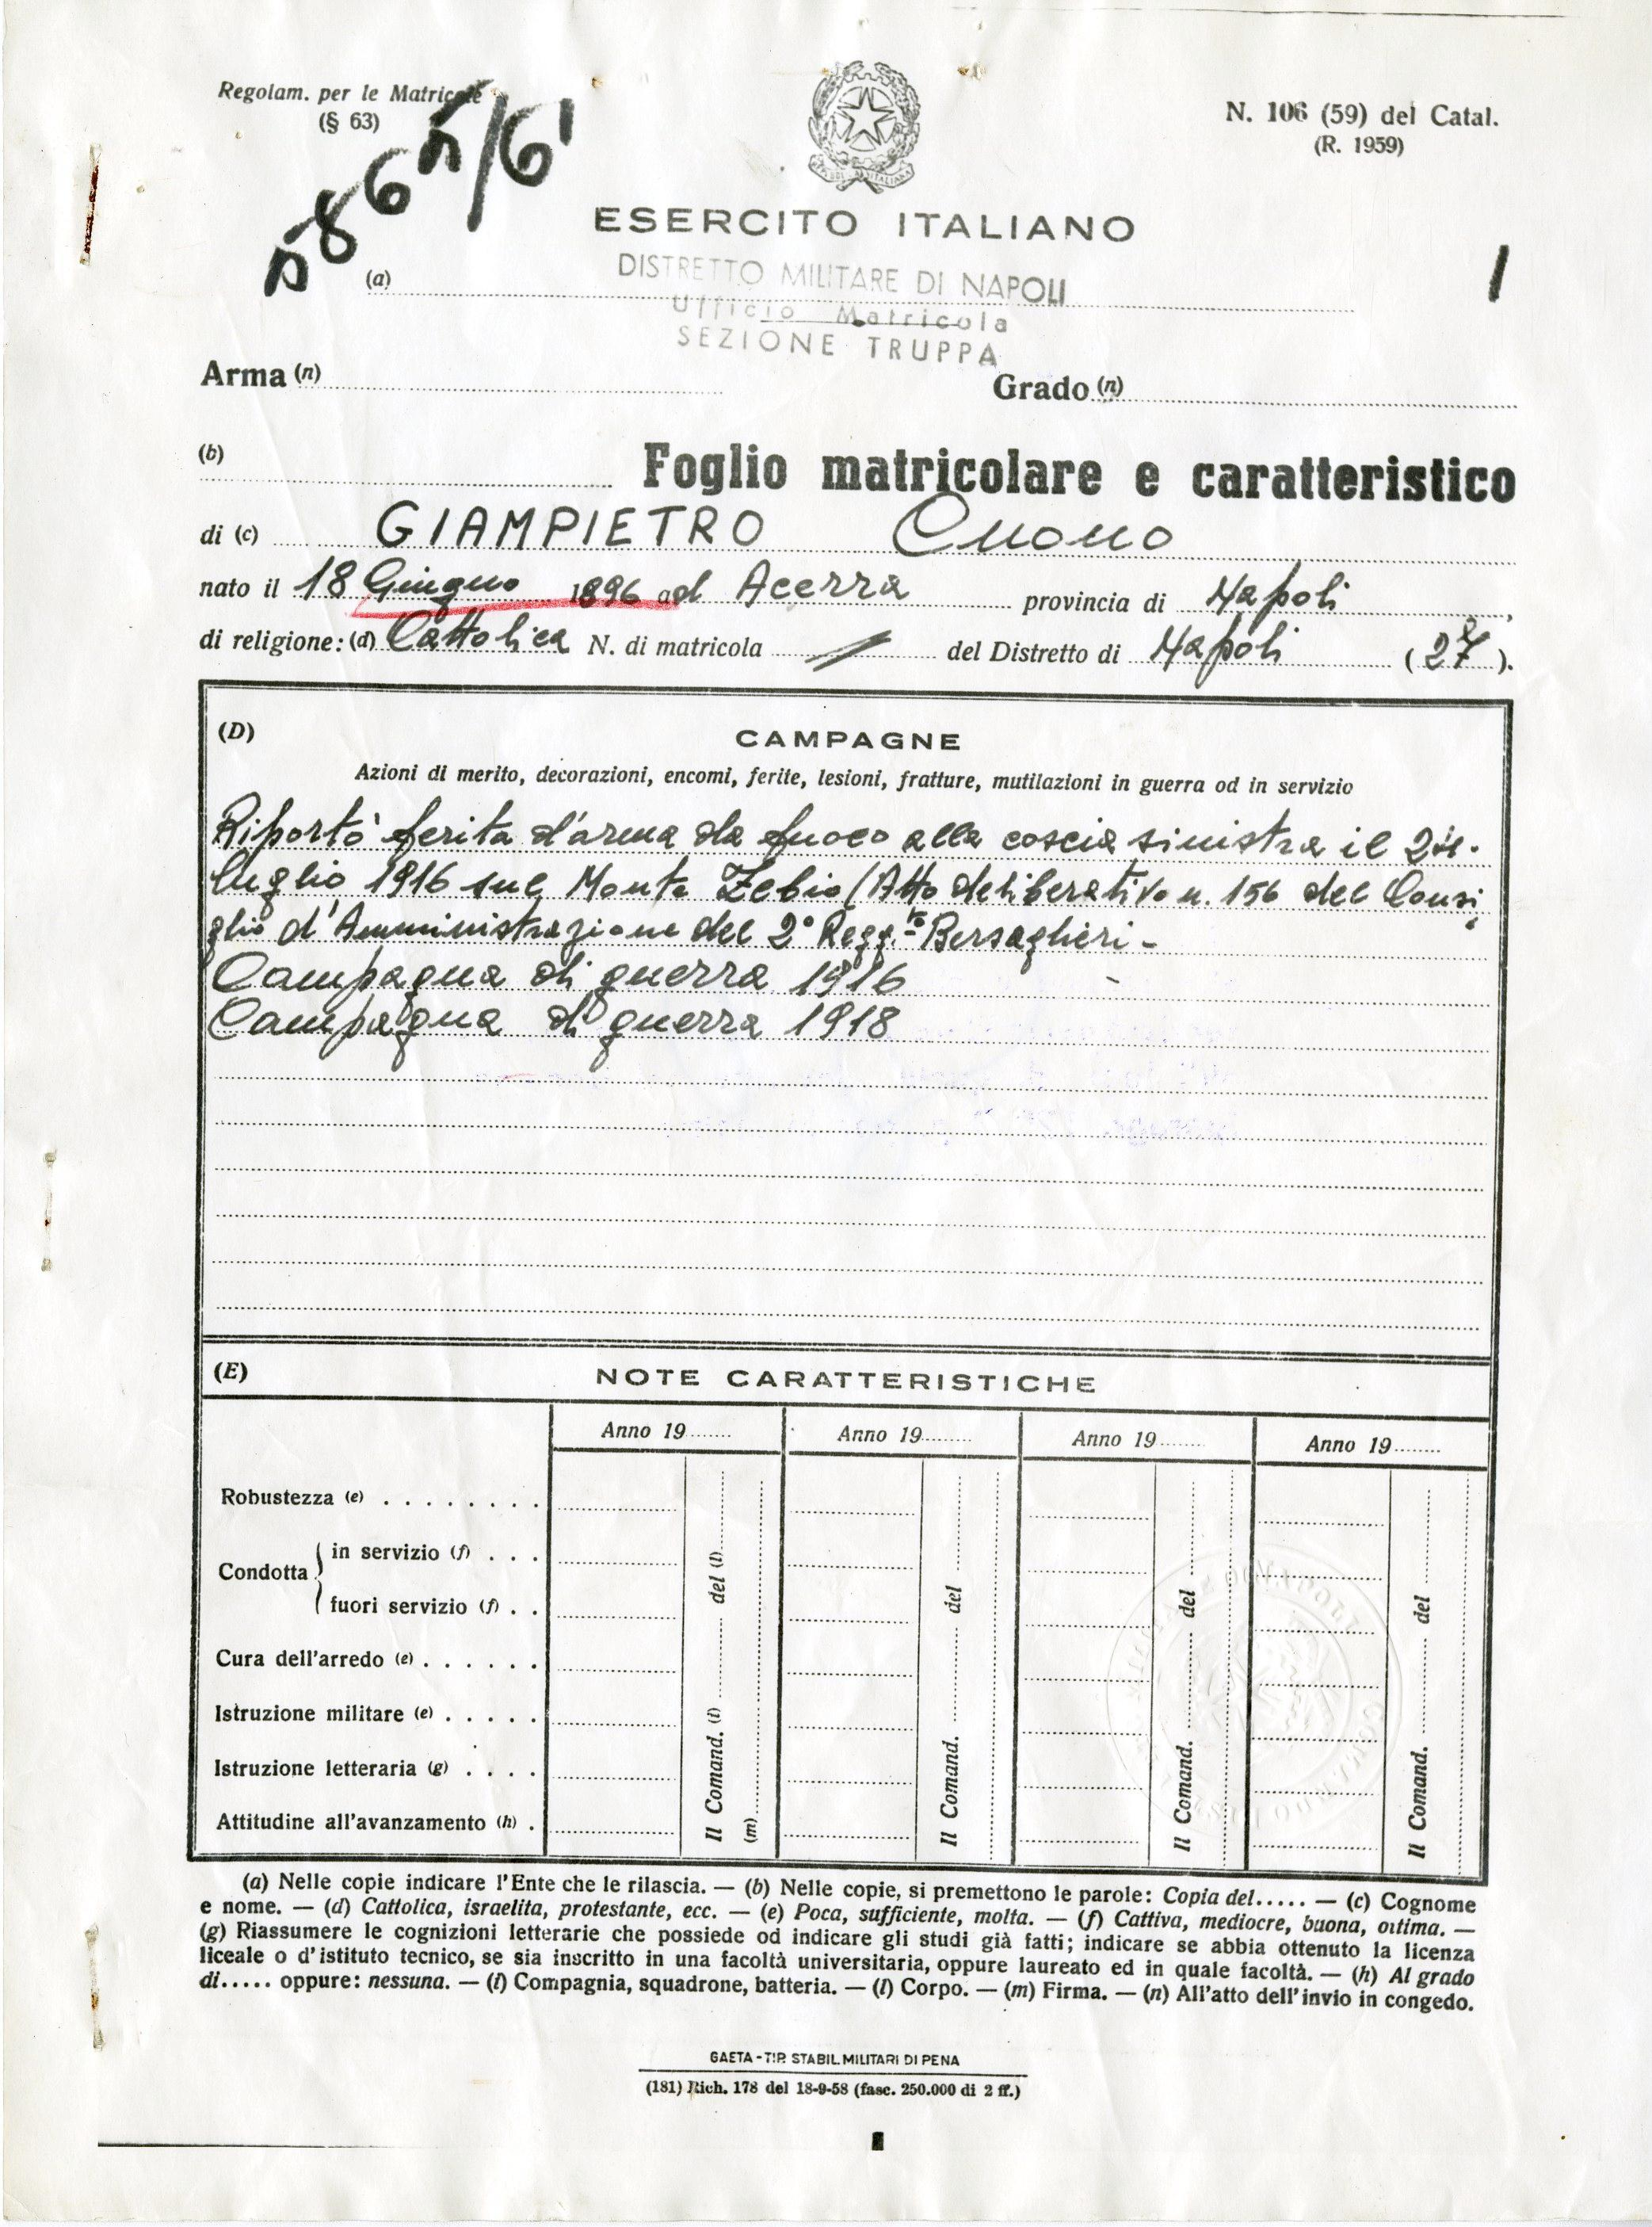 Regolam. per le Matricole
(§ 63)
5865/61
N. 106 (59) del Catal.
(R. 1959)
ESERCITO ITALIANO
1
(a)
DISTRETTO MILITARE DI NAPOLI
Ufficio Matricola
SEZIONE TRUPPA
Arma (n)
Grado (n)
(b)
Foglio matricolare e caratteristico
di (c) GIAMPIETRO Cuono
nato il 18 Giugno 1896 ad Acerra provincia di Napoli,
di religione: (d) Cattolica N. di matricola del Distretto di Napoli (27).
(D)
CAMPAGNE
Azioni di merito, decorazioni, encomi, ferite, lesioni, fratture, mutilazioni in guerra od in servizio
Riportò ferita d'arma da fuoco alla coscia sinistra il
luglio 1916 sul Monte Zebio (Atto deliberativo n. 156 del Consi
glio d'Amministrazione del 2° Regg.to Bersaglieri -
Campagna di guerra 1916
Campagna di guerra 1918
(E)
NOTE CARATTERISTICHE
Anno 19........ Anno 19........ Anno 19........ Anno 19........
Robustezza (e)
Condotta
in servizio (f)
fuori servizio (f)
Cura dell'arredo (e)
Istruzione militare (e)
Istruzione letteraria (g)
Attitudine all'avanzamento (h)
Il Comand. (i) del (l)
(m)
Il Comand. del
Il Comand. del
Il Comand. del
(a) Nelle copie indicare l'Ente che le rilascia. — (b) Nelle copie, si premettono le parole: Copia del..... — (c) Cognome
e nome. — (d) Cattolica, israelita, protestante, ecc. — (e) Poca, sufficiente, molta. — (f) Cattiva, mediocre, buona, ottima. —
(g) Riassumere le cognizioni letterarie che possiede od indicare gli studi già fatti; indicare se abbia ottenuto la licenza
liceale o d'istituto tecnico, se sia inscritto in una facoltà universitaria, oppure laureato ed in quale facoltà. — (h) Al grado
di..... oppure: nessuna. — (i) Compagnia, squadrone, batteria. — (l) Corpo. — (m) Firma. — (n) All'atto dell'invio in congedo.
GAETA - TIP. STABIL. MILITARI DI PENA
(181) Rich. 178 del 18-9-58 (fasc. 250.000 di 2 ff.)